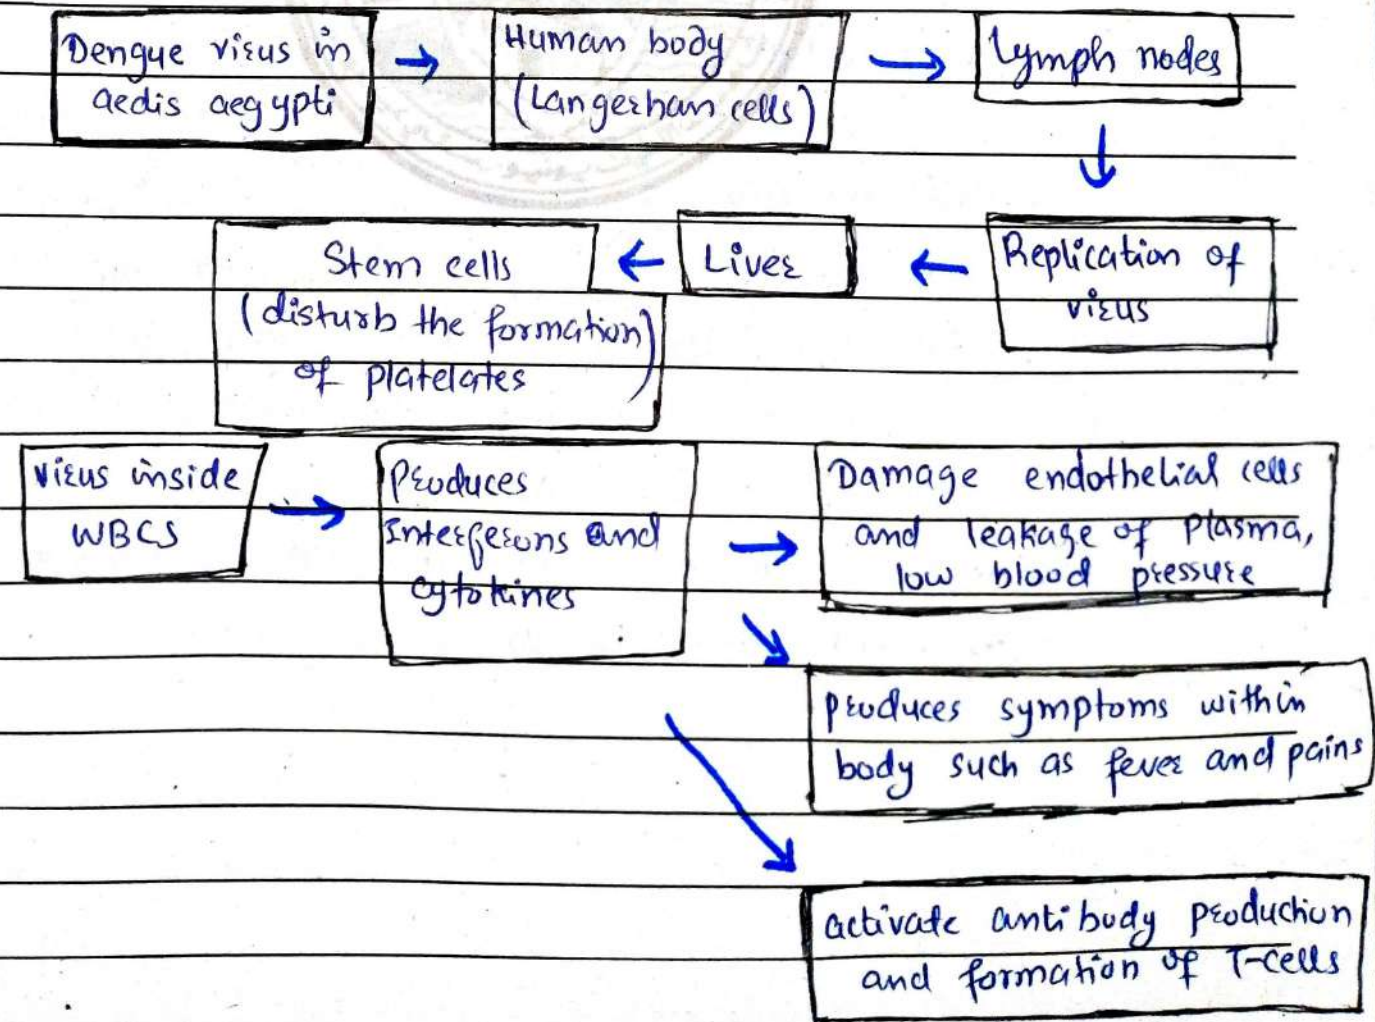 Dengue virus in
aedis aegypti
Human body
(Langerhan cells)
Lymph nodes
Replication of
virus
Liver
Stem cells
(disturb the formation)
of platelates
virus inside
WBCS
Produces
Interferons and
cytokines
Damage endothelial cells
and leakage of plasma,
low blood pressure
produces symptoms within
body such as fever and pains
activate antibody production
and formation of T-cells